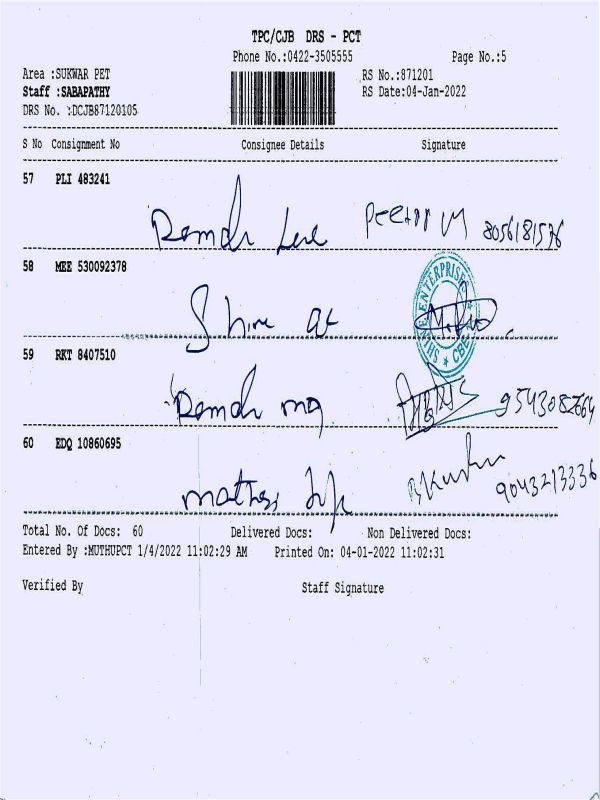 TPC/CJB DRS - PCT
Phone No.:0422-3505555 Page No.:5
Area :SUKWAR PET RS No.:871201
Staff :SABAPATHY RS Date:04-Jan-2022
DRS No. :DCJB87120105
S No Consignment No Consignee Details Signature
57 PLI 483241
8056181576
58 MEE 530092378
Shine
SHINE ENTERPRISE CBE
59 RKT 8407510
60 EDQ 10860695
9043213336
Total No. Of Docs: 60 Delivered Docs: Non Delivered Docs:
Entered By :MUTHUPCT 1/4/2022 11:02:29 AM Printed On: 04-01-2022 11:02:31
Verified By Staff Signature